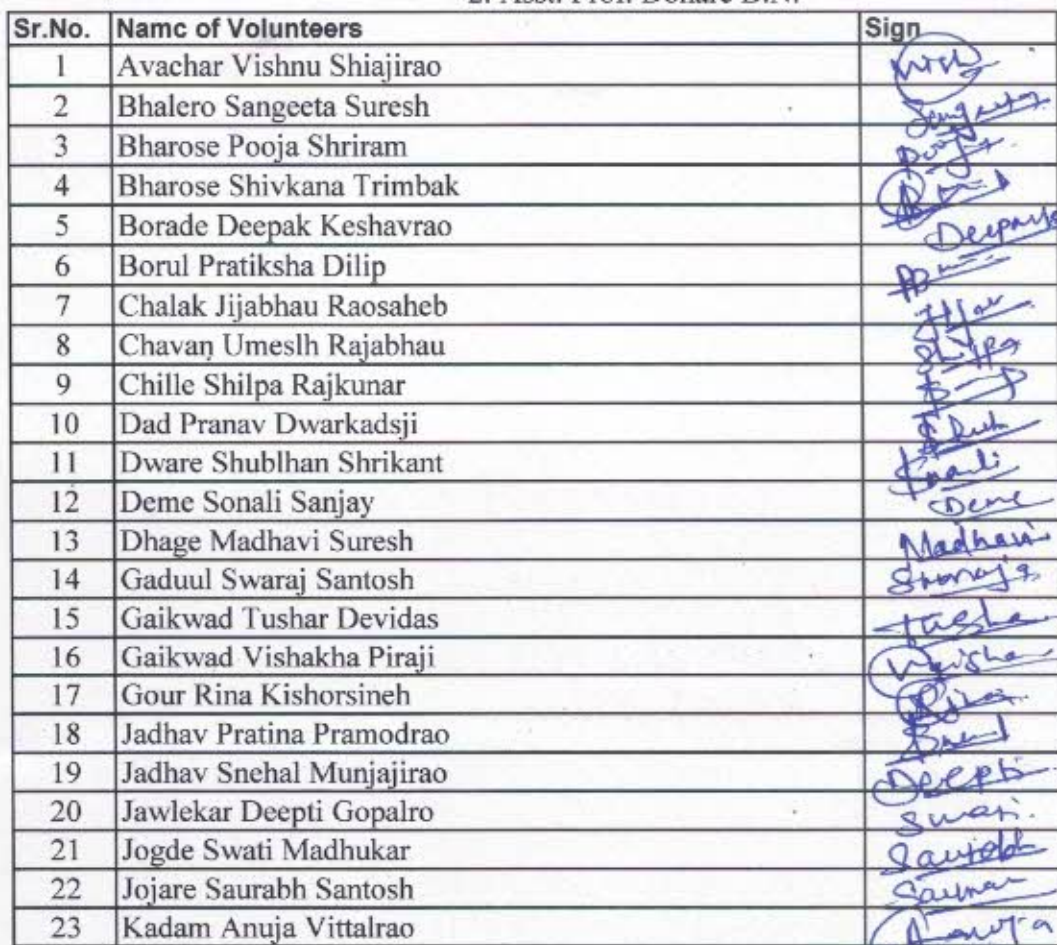 2. Asst. Prof. Donare D.N.
Sr.No. Namc of Volunteers Sign
1 Avachar Vishnu Shiajirao
2 Bhalero Sangeeta Suresh
3 Bharose Pooja Shriram
4 Bharose Shivkana Trimbak
5 Borade Deepak Keshavrao Deepak
6 Borul Pratiksha Dilip
7 Chalak Jijabhau Raosaheb
8 Chavaṇ Umeslh Rajabhau
9 Chille Shilpa Rajkunar
10 Dad Pranav Dwarkadsji
11 Dware Shublhan Shrikant
12 Deme Sonali Sanjay Deme
13 Dhage Madhavi Suresh Madhavi
14 Gaduul Swaraj Santosh
15 Gaikwad Tushar Devidas
16 Gaikwad Vishakha Piraji
17 Gour Rina Kishorsineh
18 Jadhav Pratina Pramodrao
19 Jadhav Snehal Munjajirao Deepti
20 Jawlekar Deepti Gopalro Swati
21 Jogde Swati Madhukar
22 Jojare Saurabh Santosh
23 Kadam Anuja Vittalrao Anuja